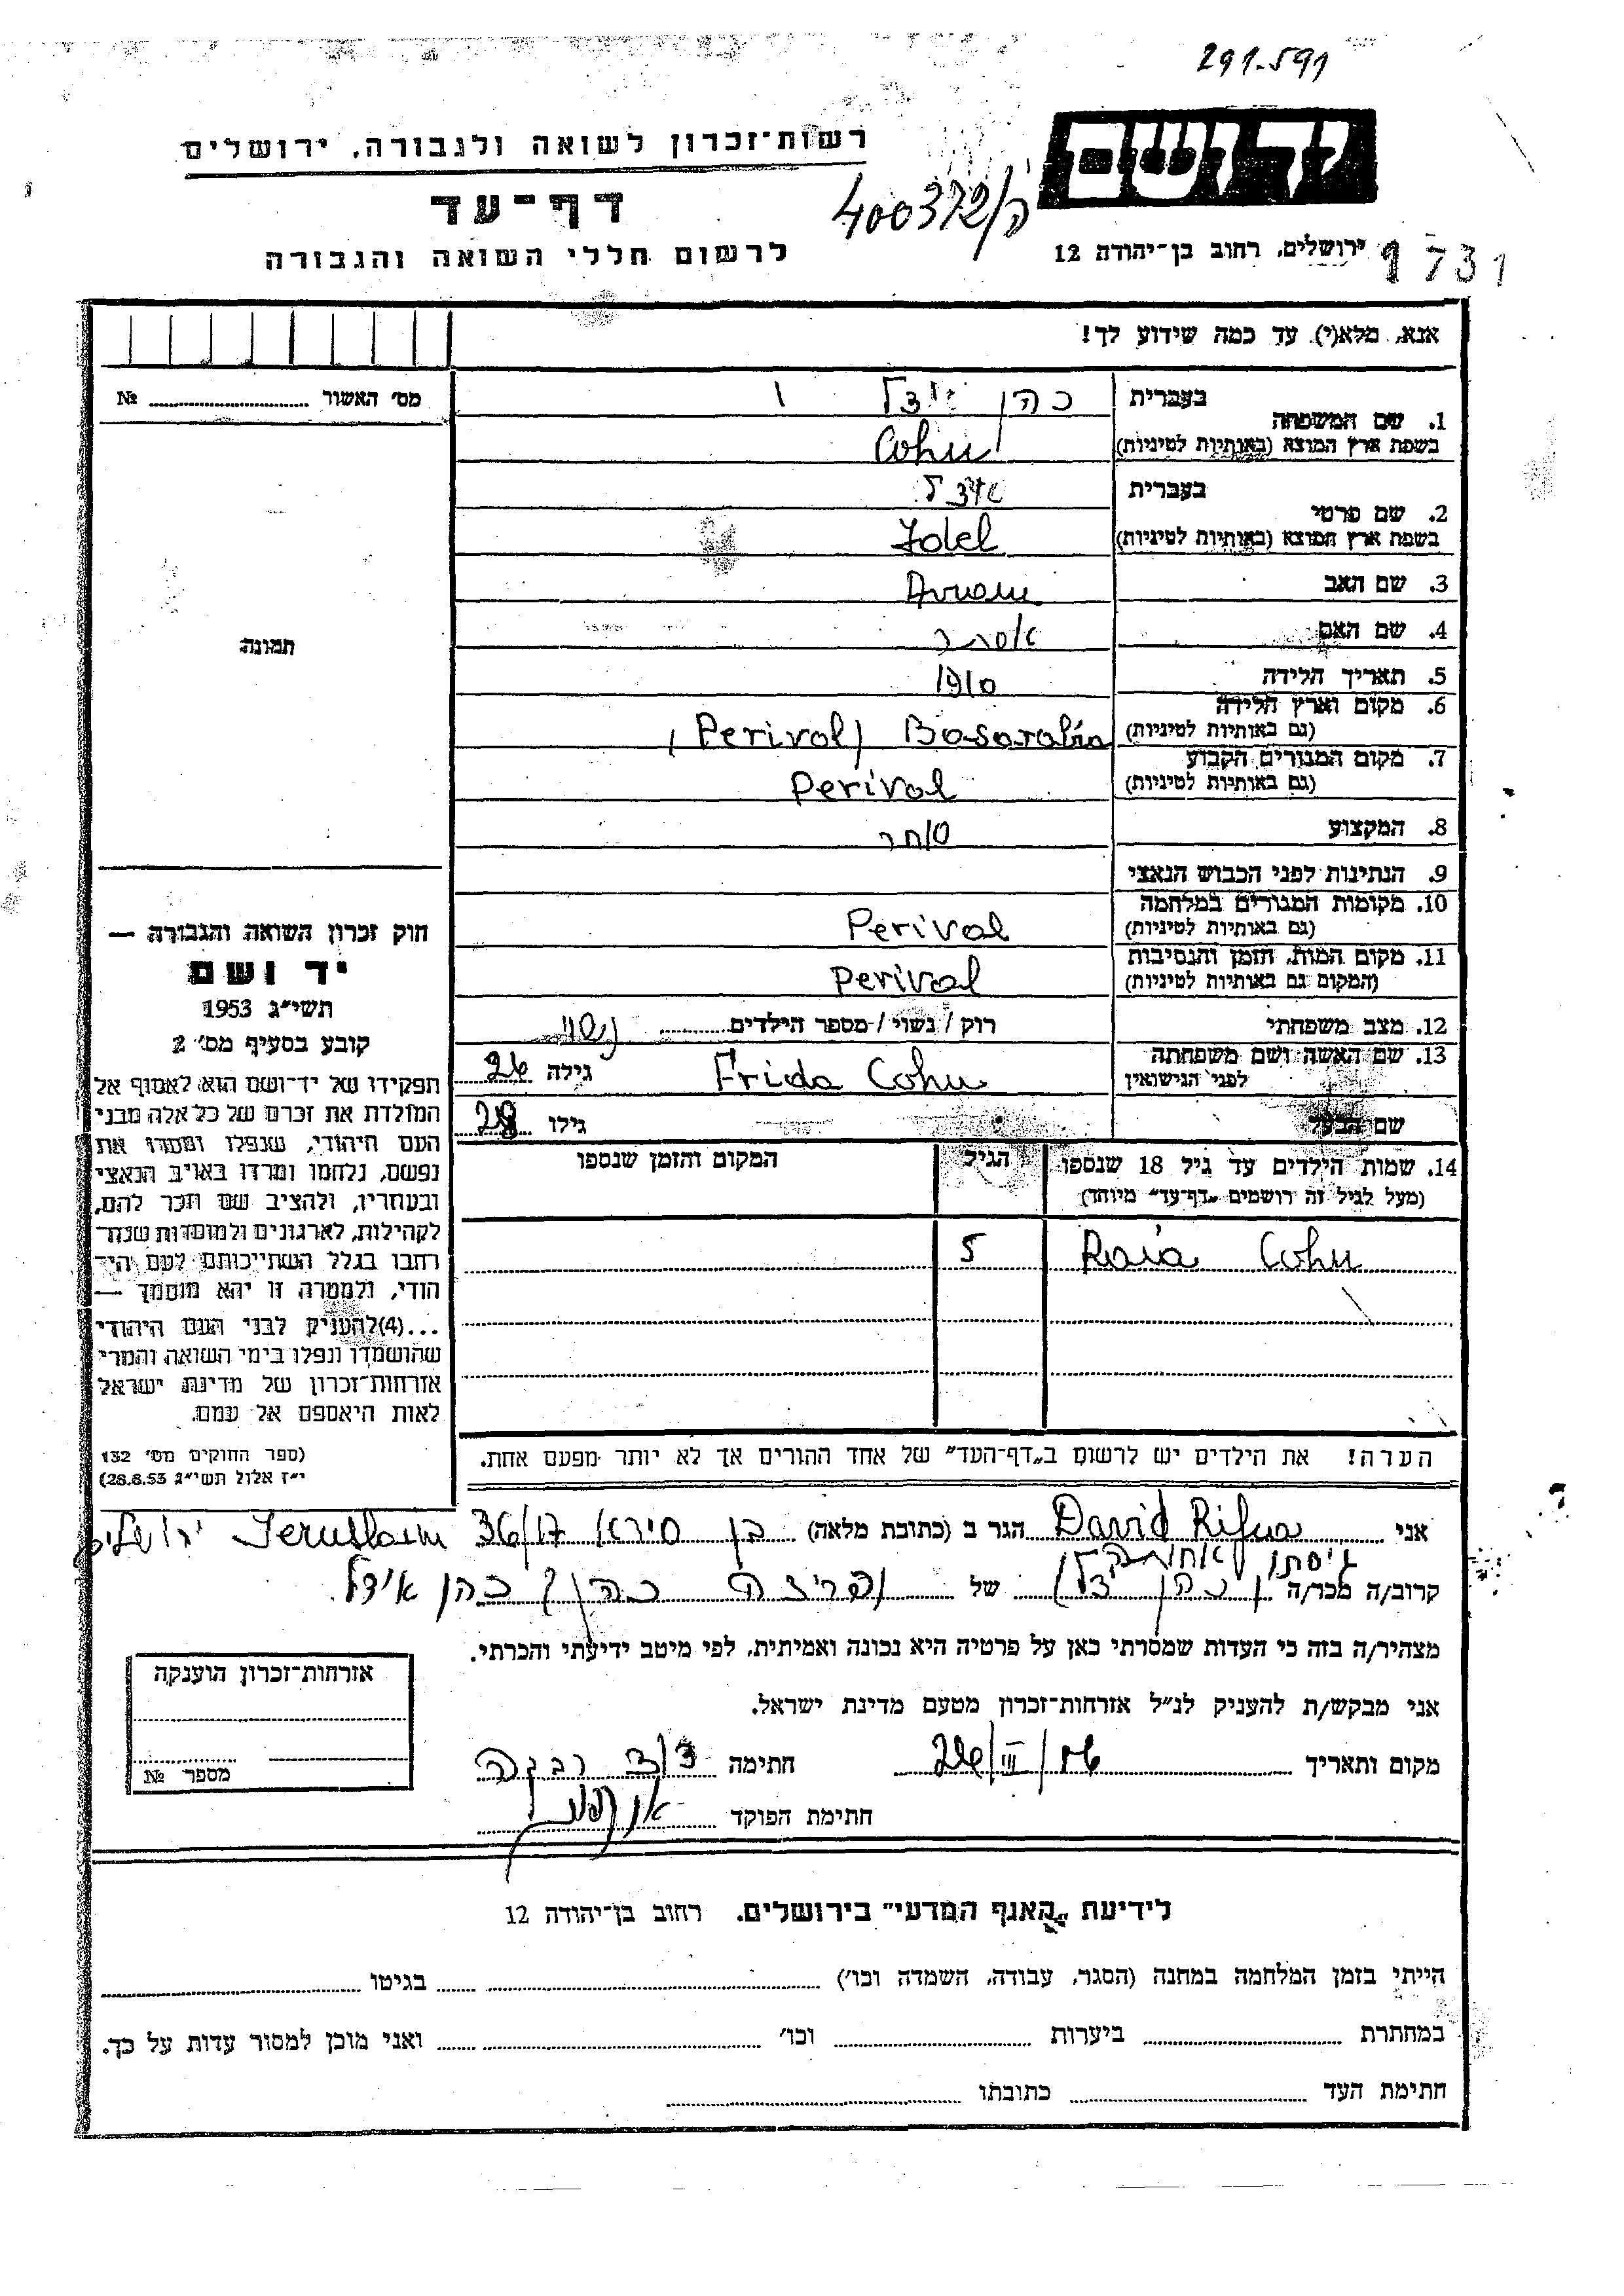 291.591
יד ושם
רשות־זכרון לשואה ולגבורה, ירושלים
דף־עד
400372/ה
לרשום חללי השואה והגבורה
ירושלים, רחוב בן־יהודה 12
1731
אנא, מלא(י) עד כמה שידוע לך!
מס׳ האשור № ........
1. שם המשפחה
בעברית כהן
בשפת ארץ המוצא (באותיות לטיניות) Cohn
2. שם פרטי
בעברית
בשפת ארץ המוצא (באותיות לטיניות) Idel
3. שם האב Avram
4. שם האם
5. תאריך הלידה 1910
6. מקום וארץ הלידה (גם באותיות לטיניות) Basarabia (Perival)
7. מקום המגורים הקבוע (גם באותיות לטיניות) Perival
8. המקצוע סוחר
9. הנתינות לפני הכבוש הנאצי
10. מקומות המגורים במלחמה (גם באותיות לטיניות) Perival
11. מקום המות, הזמן והנסיבות (המקום גם באותיות לטיניות) Perival
12. מצב משפחתי רוק / נשוי / מספר הילדים נשוי
13. שם האשה ושם משפחתה לפני הנישואין Frida Cohn גילה 26
שם הבעל גילו 28
14. שמות הילדים עד גיל 18 שנספו
(מעל לגיל זה רושמים „דף־עד״ מיוחד)
הגיל
המקום והזמן שנספו
Raia Cohn 5
תמונה
חוק זכרון השואה והגבורה —
יד ושם
תשי״ג 1953
קובע בסעיף מס׳ 2
תפקידו של יד־ושם הוא לאסוף אל
המולדת את זכרם של כל אלה מבני
העם היהודי, שנפלו ומסרו את
נפשם, נלחמו ומרדו באויב הנאצי
ובעוזריו, ולהציב שם וזכר להם,
לקהילות, לארגונים ולמוסדות שנח־
רבו בגלל השתייכותם לעם היה־
הודי, ולמטרה זו יהא מוסמך —
...(4) להעניק לבני העם היהודי
שהושמדו ונפלו בימי השואה והמרי
אזרחות־זכרון של מדינת ישראל
לאות היאספם אל עמם.
(ספר החוקים מס׳ 132
י״ז אלול תשי״ג 28.8.53)
הערה! את הילדים יש לרשום ב„דף־העד״ של אחד ההורים אך לא יותר מפעם אחת.
אני David Rifca הגר ב (כתובת מלאה) בן סירא 36/17 Jeruslaim ירושלים
גיסתו
קרוב/ה מכר/ה של כהן אידל
מצהיר/ה בזה כי העדות שמסרתי כאן על פרטיה היא נכונה ואמיתית, לפי מיטב ידיעתי והכרתי.
אני מבקש/ת להעניק לנ״ל אזרחות־זכרון מטעם מדינת ישראל.
מקום ותאריך 26/III/56 חתימה דוד רבקה
חתימת הפוקד
אזרחות־זכרון הוענקה
מספר №
לידיעת „האגף המדעי״ בירושלים, רחוב בן־יהודה 12
הייתי בזמן המלחמה במחנה (הסגר, עבודה, השמדה וכו׳) ........ בגיטו ........
במחתרת ........ ביערות ........ וכו׳ ........ ואני מוכן למסור עדות על כך.
חתימת העד ........ כתובתו ........